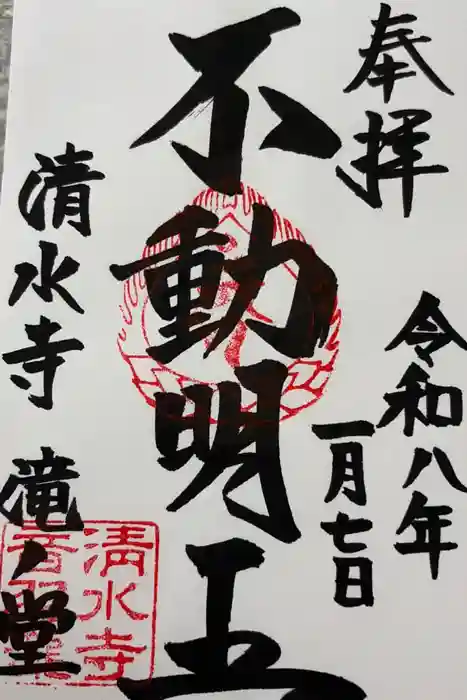 奉拝
令和八年
一月七日
不動明王
清水寺 滝ノ堂
清水寺